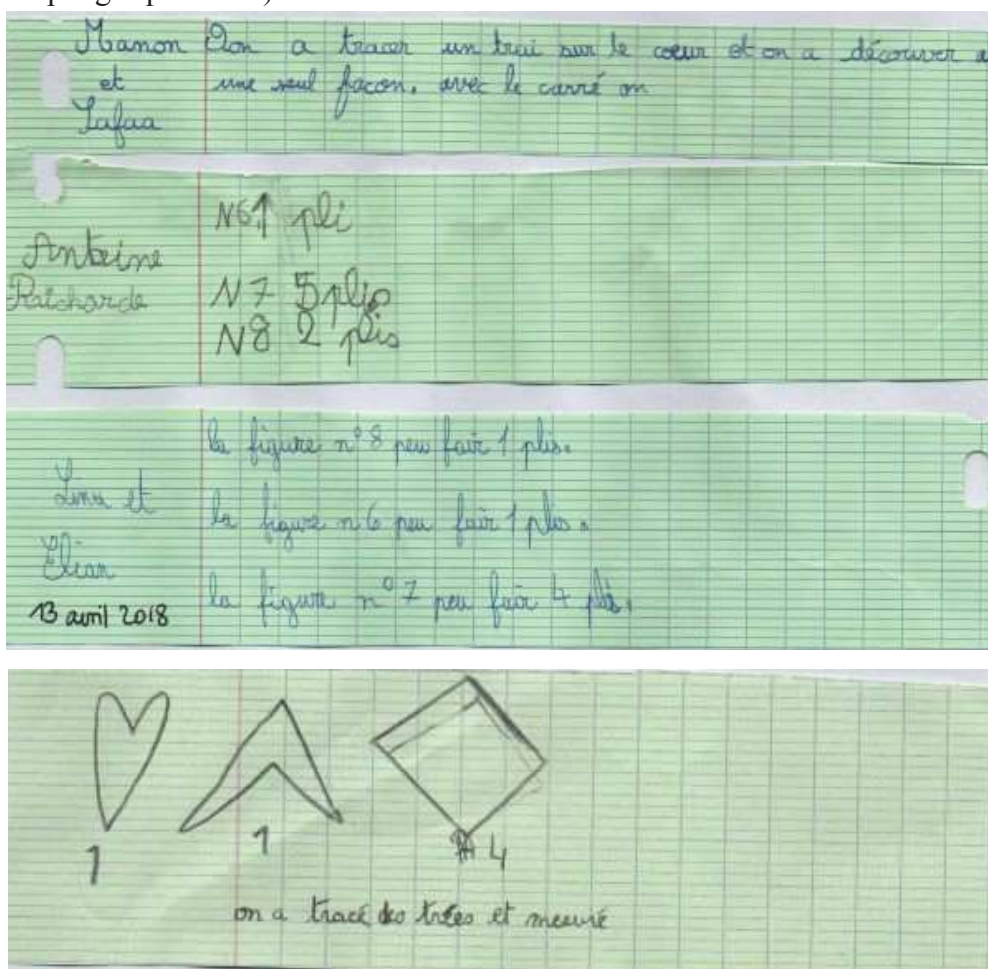 Manon et Lafaa
On a tracer un trai sur le cœur et on a découver
une seul façon. avec le carré on
Antoine
N6 1 pli
N7 5 plis
N8 2 plis
Linu et Elian
13 avril 2018
la figure n° 8 peu fair 1 plis.
la figure n 6 peu fair 1 plis.
la figure n° 7 peu fair 4 plis.
1
1
4
on a tracé des trées et mesuré